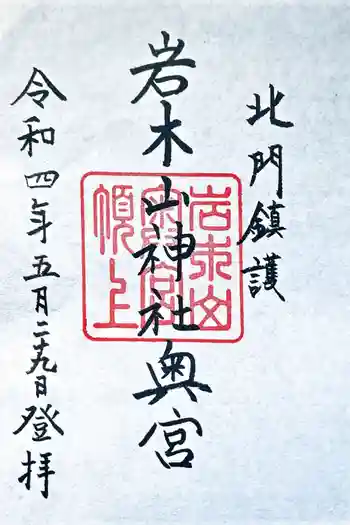 北門鎮護
岩木山神社奥宮
令和四年五月二十九日登拝
岩木山
奥宮
頂上